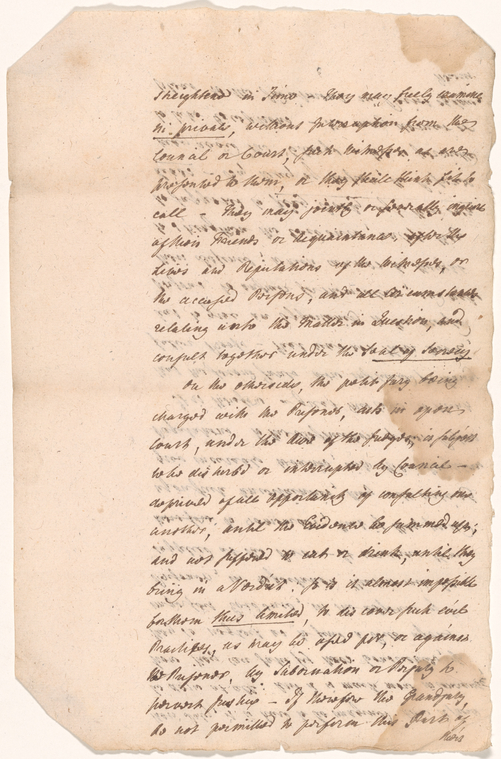 straightend in Time They may fully examine
in private, without Interruption from the
Council or Court, such Witnesses as are
presented to them, or they shall think fit to
call they may jointly or severally inquire
of their Friends or Acquaintance after the
Lives and Reputations of the Witnesses, or
the accused Persons, and all Circumstances
relating unto the Matter in Question, and
consult together under the Seal of Secrecy
On the otherside, the petit Jury being
charged with the Prisoner, acts in open
Court, under the Awe of the Judges, is subject
to be disturbed or interrupted by Council -
deprived of all opportunity of consulting one
another, until the Evidence be summed up;
and not suffered to eat or drink, until they
bring in a Verdict. So it is almost impossible
for them thus limited, to discover such evil
Practises, as may be used for, or against
the Prisoner, by Subornation or Perjury to
pervert Justice - If therefore the Grandjury
be not permitted to perform this Part of